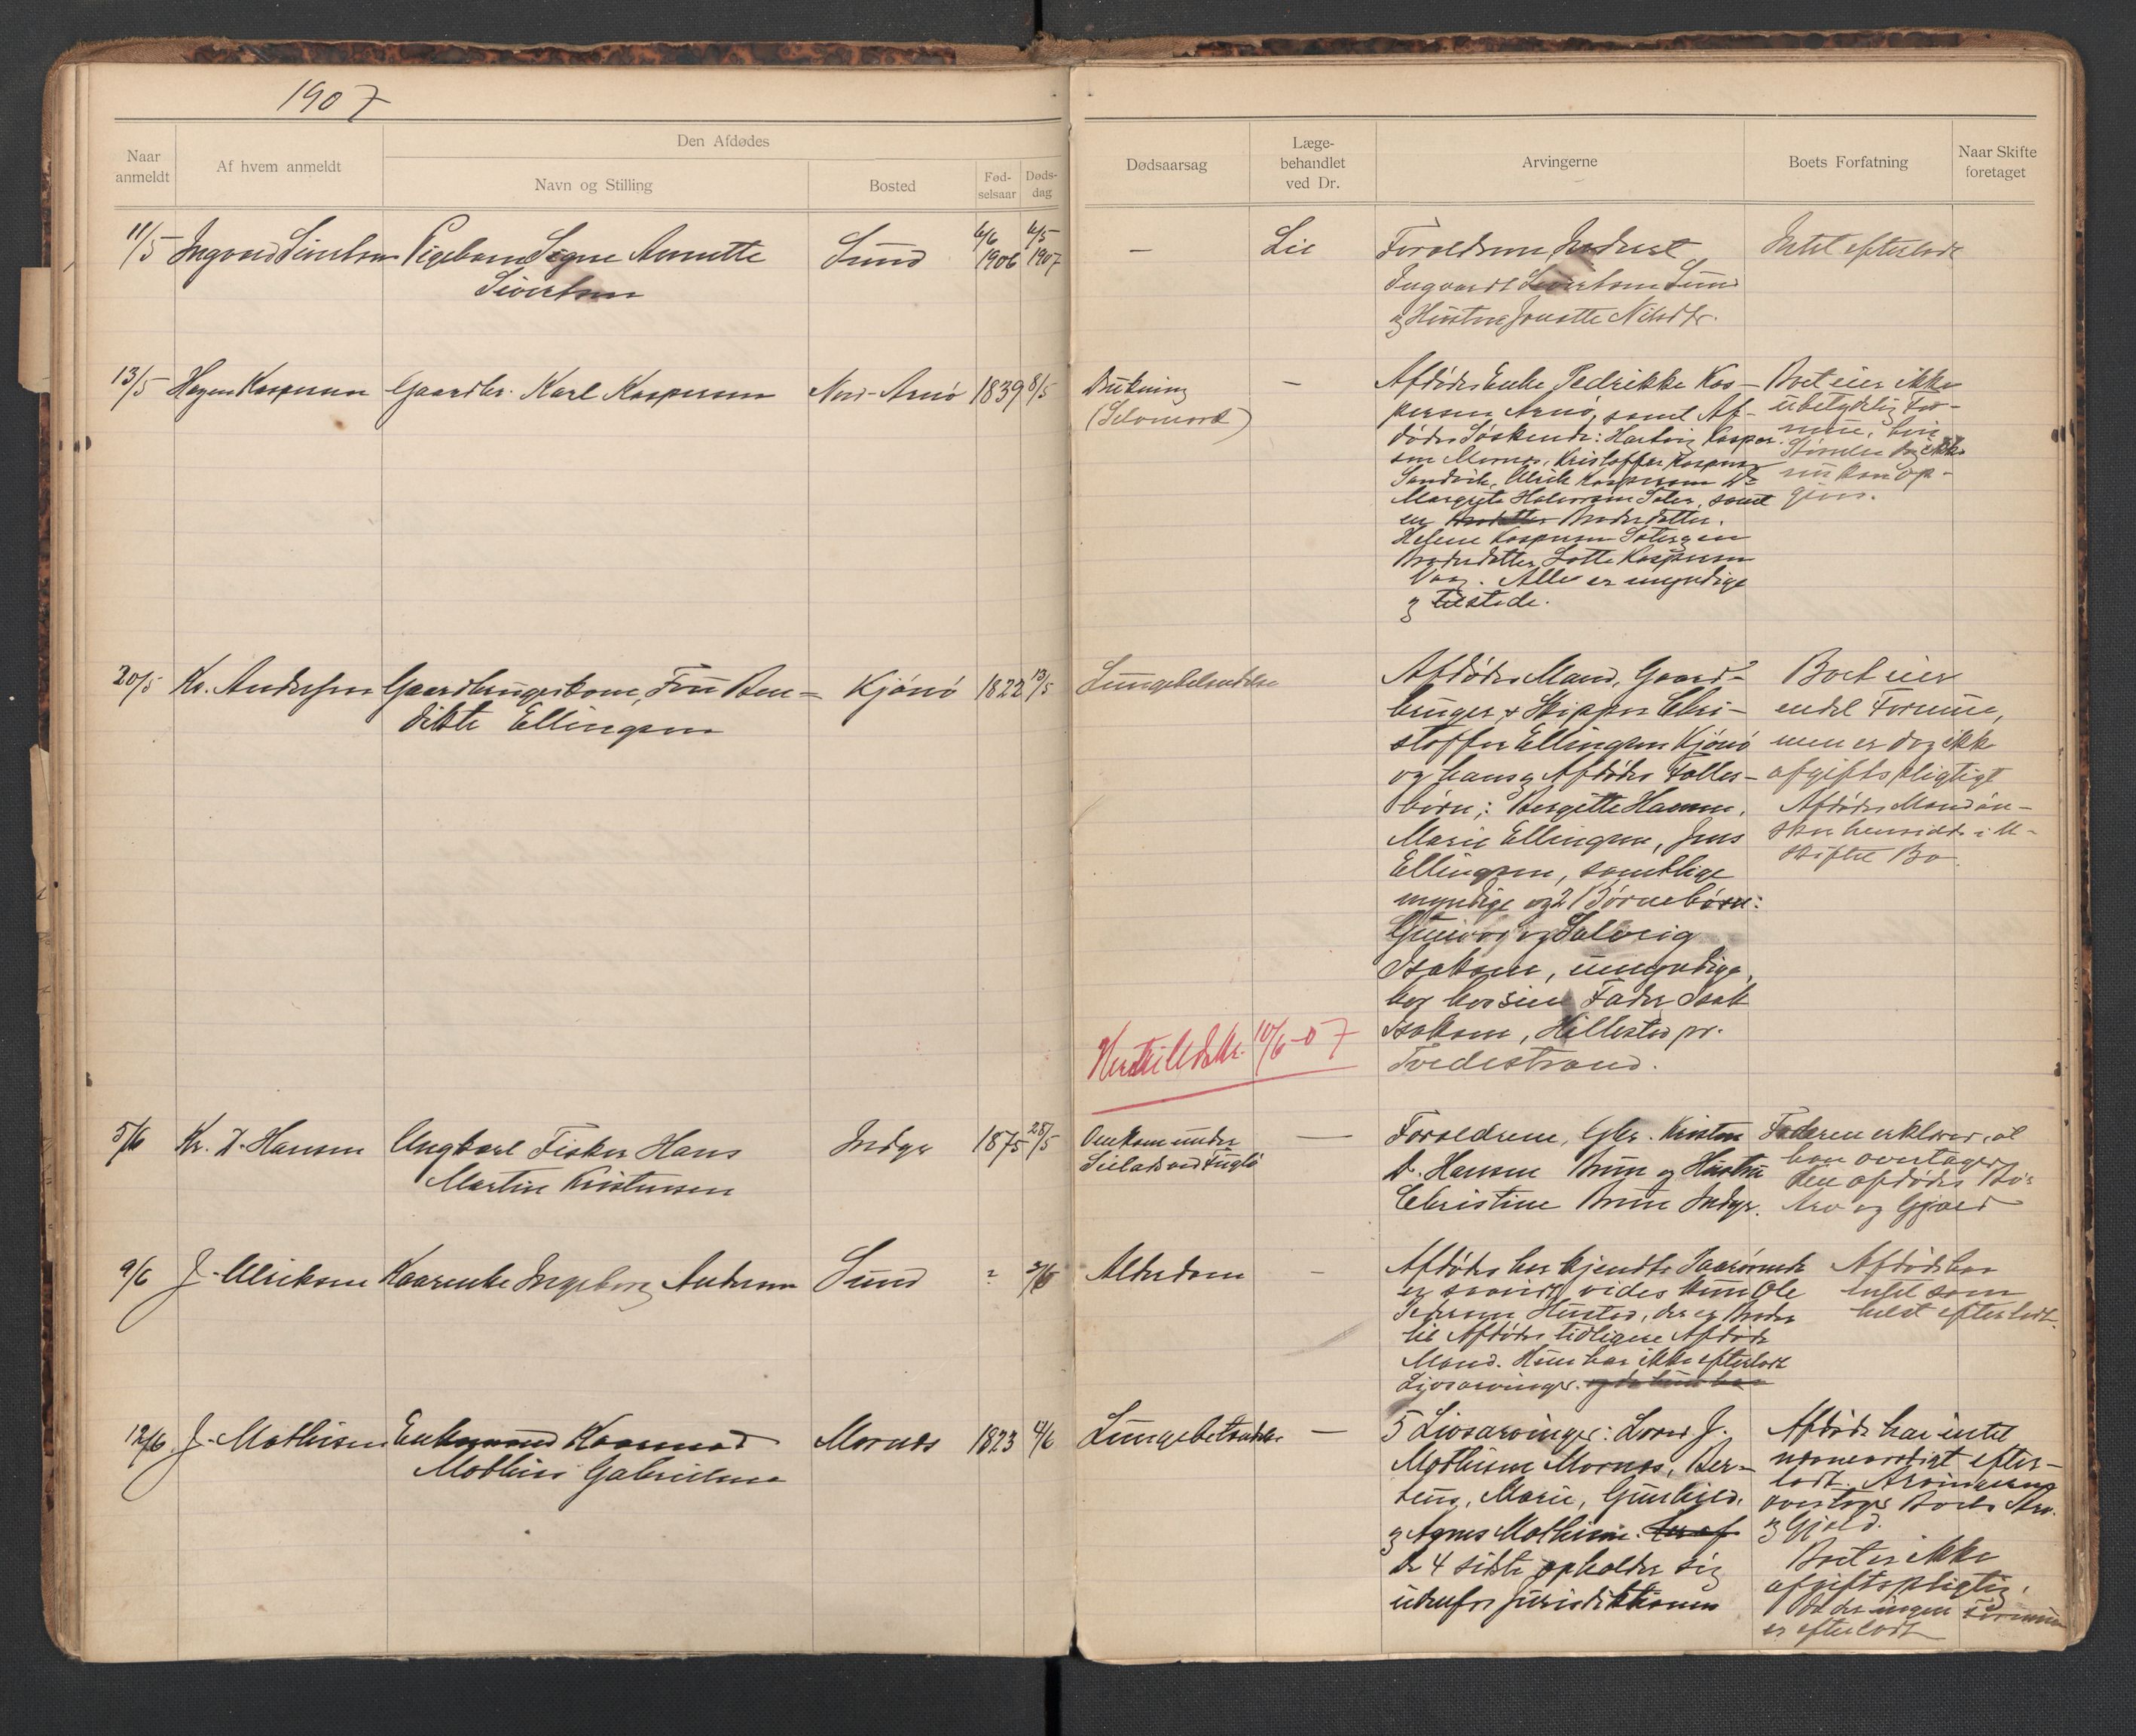 1907
Den Afdødes
Naar anmeldt
Af hvem anmeldt
Navn og Stilling
Bosted
Fød-selsaar
Døds-dag
Dødsaarsag
Læge-behandlet ved Dr.
Arvingerne
Boets Forfatning
Naar Skifte foretaget
11/5 Ingvard Sivertsen Pigebarn Signe Annette Sund 6/6 1906 6/5 1907
Sivertsen
— Lie
Forældrene Inderst
Ingvardt Sivertsen Sund
og Hustru Jonette Nilsdtr.
Intet efterladt
13/5 Hagen Kaspersen Gaardbr. Karl Kaspersen Nord-Arnö 1839 8/5
Drukning
(Selvmord)
—
Afdødes Enke Pedrikke Kas-
persen Arnö, samt Af-
dødes Søskende: Hartvig Kasper-
sen Mornes, Kristoffer Kaspersen
Sandvik, Ulrik Kaspersen Do
Margrete Halvorsen Säter, samt
en Broderdatter,
Helene Kaspersen Säter og en
Broderdatter Lotte Kaspersen
Vaag. Alle er myndige
og tilstede.
Boet eier ikke
ubetydelig For-
mue, hvis
Størrelse dog ikke
nu kan op-
gives.
20/5 Kr. Andersen Gaardbrugerkone, Fru Ben- Kjönö 1822 13/5
dikte Ellingsen
Lungebetændelse
Afdødes Mand, Gaard-
bruger & Skipper Chri-
stoffer Ellingsen Kjönö
og hans og Afdødes Fælles-
børn: Bergitte Hamm,
Marie Ellingsen, Jens
Ellingsen, samtlige
myndige og 2 Børnebørn:
og Solveig
Isaksen, umyndige,
bor hos sin Fader Isak
Isaksen, Hillestad pr.
Tvedestrand.
Boet eier
endel Formue,
men er dog ikke
afgiftspligtigt
Afdødes Mand øn-
sker hensidde i u-
skiftet Bo.
10/6-07
5/6 Kr. D. Hansen Ungkarl Fisker Hans Indyr 1875 28/5
Martin Kristensen
Omkom under
Seilads ved Fuglö
—
Forældrene, Gbr. Kristen
D. Hansen Brun og Hustru
Christine Brun Indyr.
Faderen erklærer, at
han overtager
den afdødes Bo's
Arv og Gjæld
9/6 J. Ulriksen Kaarenke Ingeborg Andersen Sund ? 2/6
Alderdom —
Afdødes her kjendte Paarørende
er saavidt vides kun Ole
Pedersen Hustad, der er Broder
til Afdødes tidligere Afdøde
Mand. Hun har ikke efterladt
Livsarvinger. og da hun har
Afdøde har
intet som
helst efterladt.
12/6 J. Mathisen Enkemand Kaarmand Mornes 1823 4/6
Mathias Gabrielsen
Lungebetændelse —
5 Livsarvinger: Lorns J.
Mathisen Mornes, Ber-
teus, Marie, Gunhild,
og Agnes Mathisen. heraf
De 4 sidste opholder sig
udenfor Jurisdiktionen
Afdøde har intet
nævneværdigt efter-
ladt. Arvingerne
overtager Boets Arv
og Gjæld.
Boet er ikke
afgiftspligtig,
da der ingen Formue
er efterladt